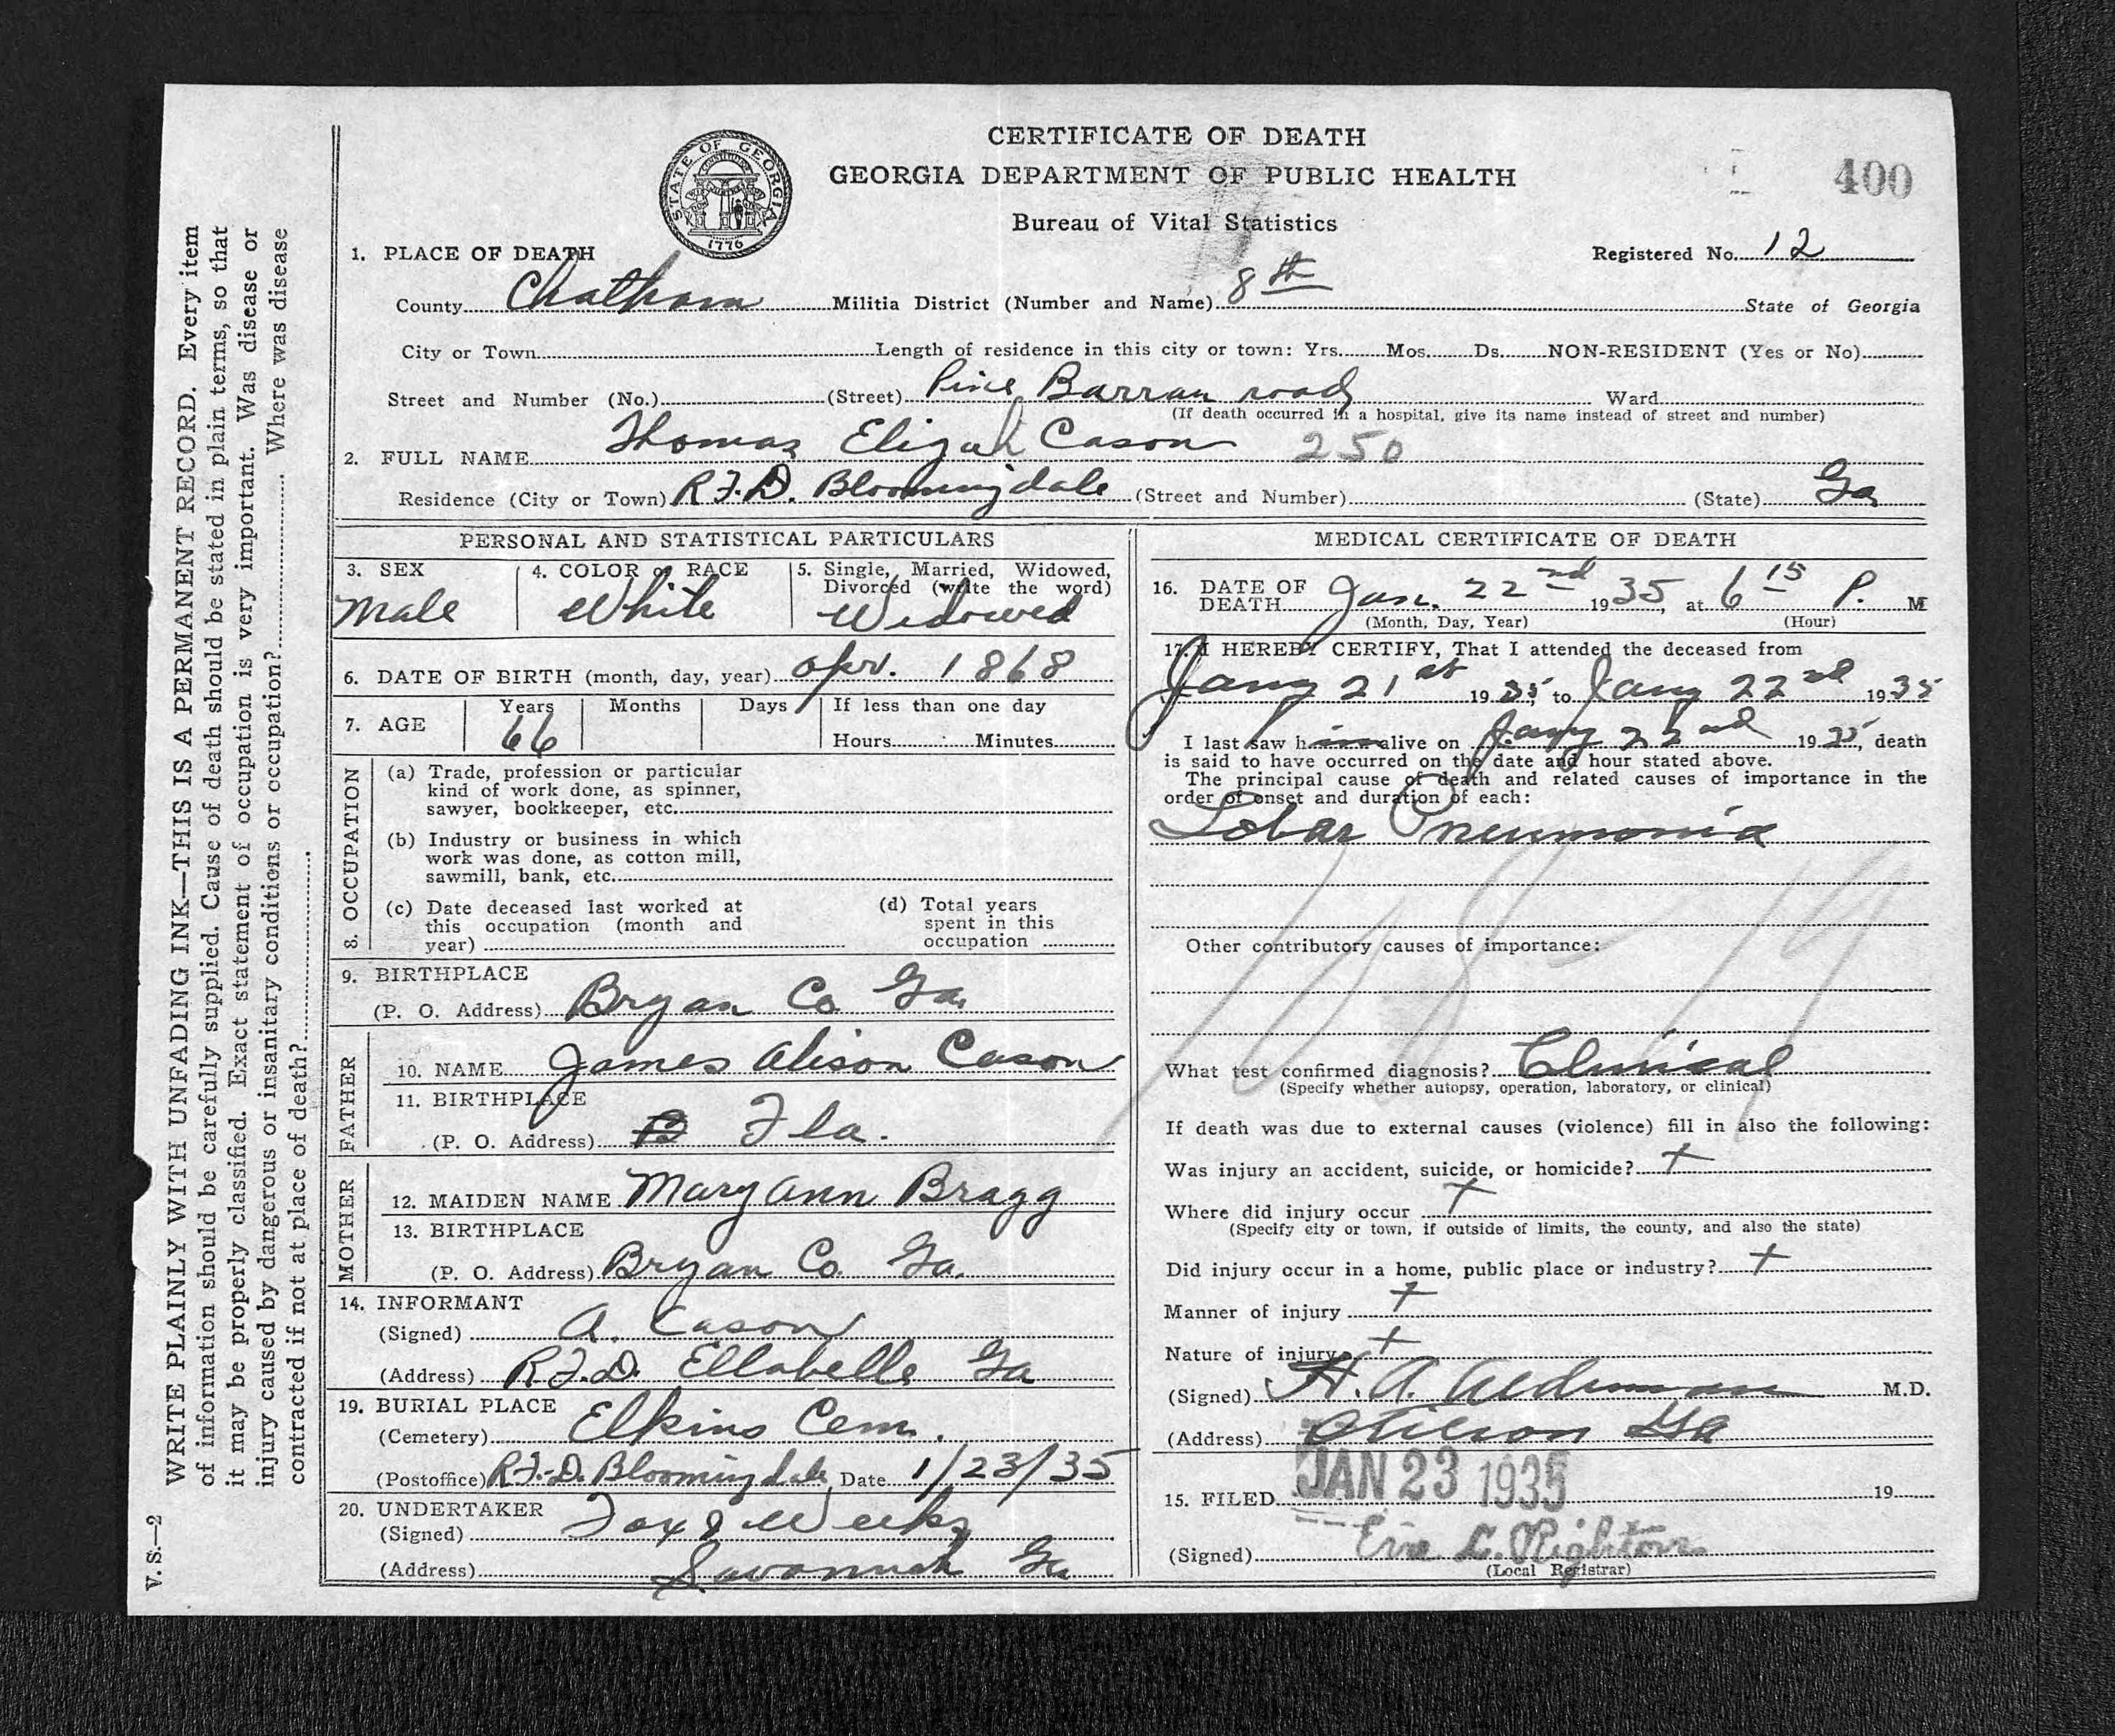 CERTIFICATE OF DEATH
GEORGIA DEPARTMENT OF PUBLIC HEALTH
Bureau of Vital Statistics
400
STATE OF GEORGIA
CONSTITUTION
1776
Registered No. 12
1. PLACE OF DEATH
County Chatham Militia District (Number and Name) 8th State of Georgia
City or Town Length of residence in this city or town: Yrs. Mos. Ds. NON-RESIDENT (Yes or No)
Street and Number (No.) (Street) Pine Barran road Ward
(If death occurred in a hospital, give its name instead of street and number)
2. FULL NAME Thomas Elizah Cason 250
Residence (City or Town) R.F.D. Bloomingdale (Street and Number) (State) Ga
PERSONAL AND STATISTICAL PARTICULARS
3. SEX Male
4. COLOR or RACE White
5. Single, Married, Widowed,
Divorced (write the word)
Widowed
6. DATE OF BIRTH (month, day, year) Apr. 1868
7. AGE Years 66 Months Days If less than one day
Hours Minutes
8. OCCUPATION
(a) Trade, profession or particular
kind of work done, as spinner,
sawyer, bookkeeper, etc.
(b) Industry or business in which
work was done, as cotton mill,
sawmill, bank, etc.
(c) Date deceased last worked at
this occupation (month and
year)
(d) Total years
spent in this
occupation
9. BIRTHPLACE
(P. O. Address) Bryan Co Ga.
FATHER
10. NAME James Alison Cason
11. BIRTHPLACE
(P. O. Address) B Fla.
MOTHER
12. MAIDEN NAME Mary Ann Bragg
13. BIRTHPLACE
(P. O. Address) Bryan Co. Ga.
14. INFORMANT
(Signed) A. Cason
(Address) R.F.D. Ellabelle Ga
19. BURIAL PLACE
(Cemetery) Elkins Cem.
(Postoffice) R.F.D. Bloomingdale Date 1/23/35
20. UNDERTAKER
(Signed) Fox & Weeks
(Address) Savannah Ga
MEDICAL CERTIFICATE OF DEATH
16. DATE OF
DEATH Jan. 22nd 1935, at 6 15 P. M
(Month, Day, Year) (Hour)
17. I HEREBY CERTIFY, That I attended the deceased from
Jany 21st 1935, to Jany 22nd 1935
I last saw him alive on Jany 22nd 1935, death
is said to have occurred on the date and hour stated above.
The principal cause of death and related causes of importance in the
order of onset and duration of each:
Lobar Pneumonia
Other contributory causes of importance:
What test confirmed diagnosis? Clinical
(Specify whether autopsy, operation, laboratory, or clinical)
If death was due to external causes (violence) fill in also the following:
Was injury an accident, suicide, or homicide? +
Where did injury occur +
(Specify city or town, if outside of limits, the county, and also the state)
Did injury occur in a home, public place or industry? +
Manner of injury +
Nature of injury +
(Signed) H. A. Alderman M.D.
(Address) Stilson Ga
15. FILED JAN 23 1935 19
(Signed) L. Righton
(Local Registrar)
WRITE PLAINLY WITH UNFADING INK—THIS IS A PERMANENT RECORD. Every item
of information should be carefully supplied. Cause of death should be stated in plain terms, so that
it may be properly classified. Exact statement of occupation is very important. Was disease or
injury caused by dangerous or insanitary conditions or occupation? Where was disease
contracted if not at place of death?
V. S.—2